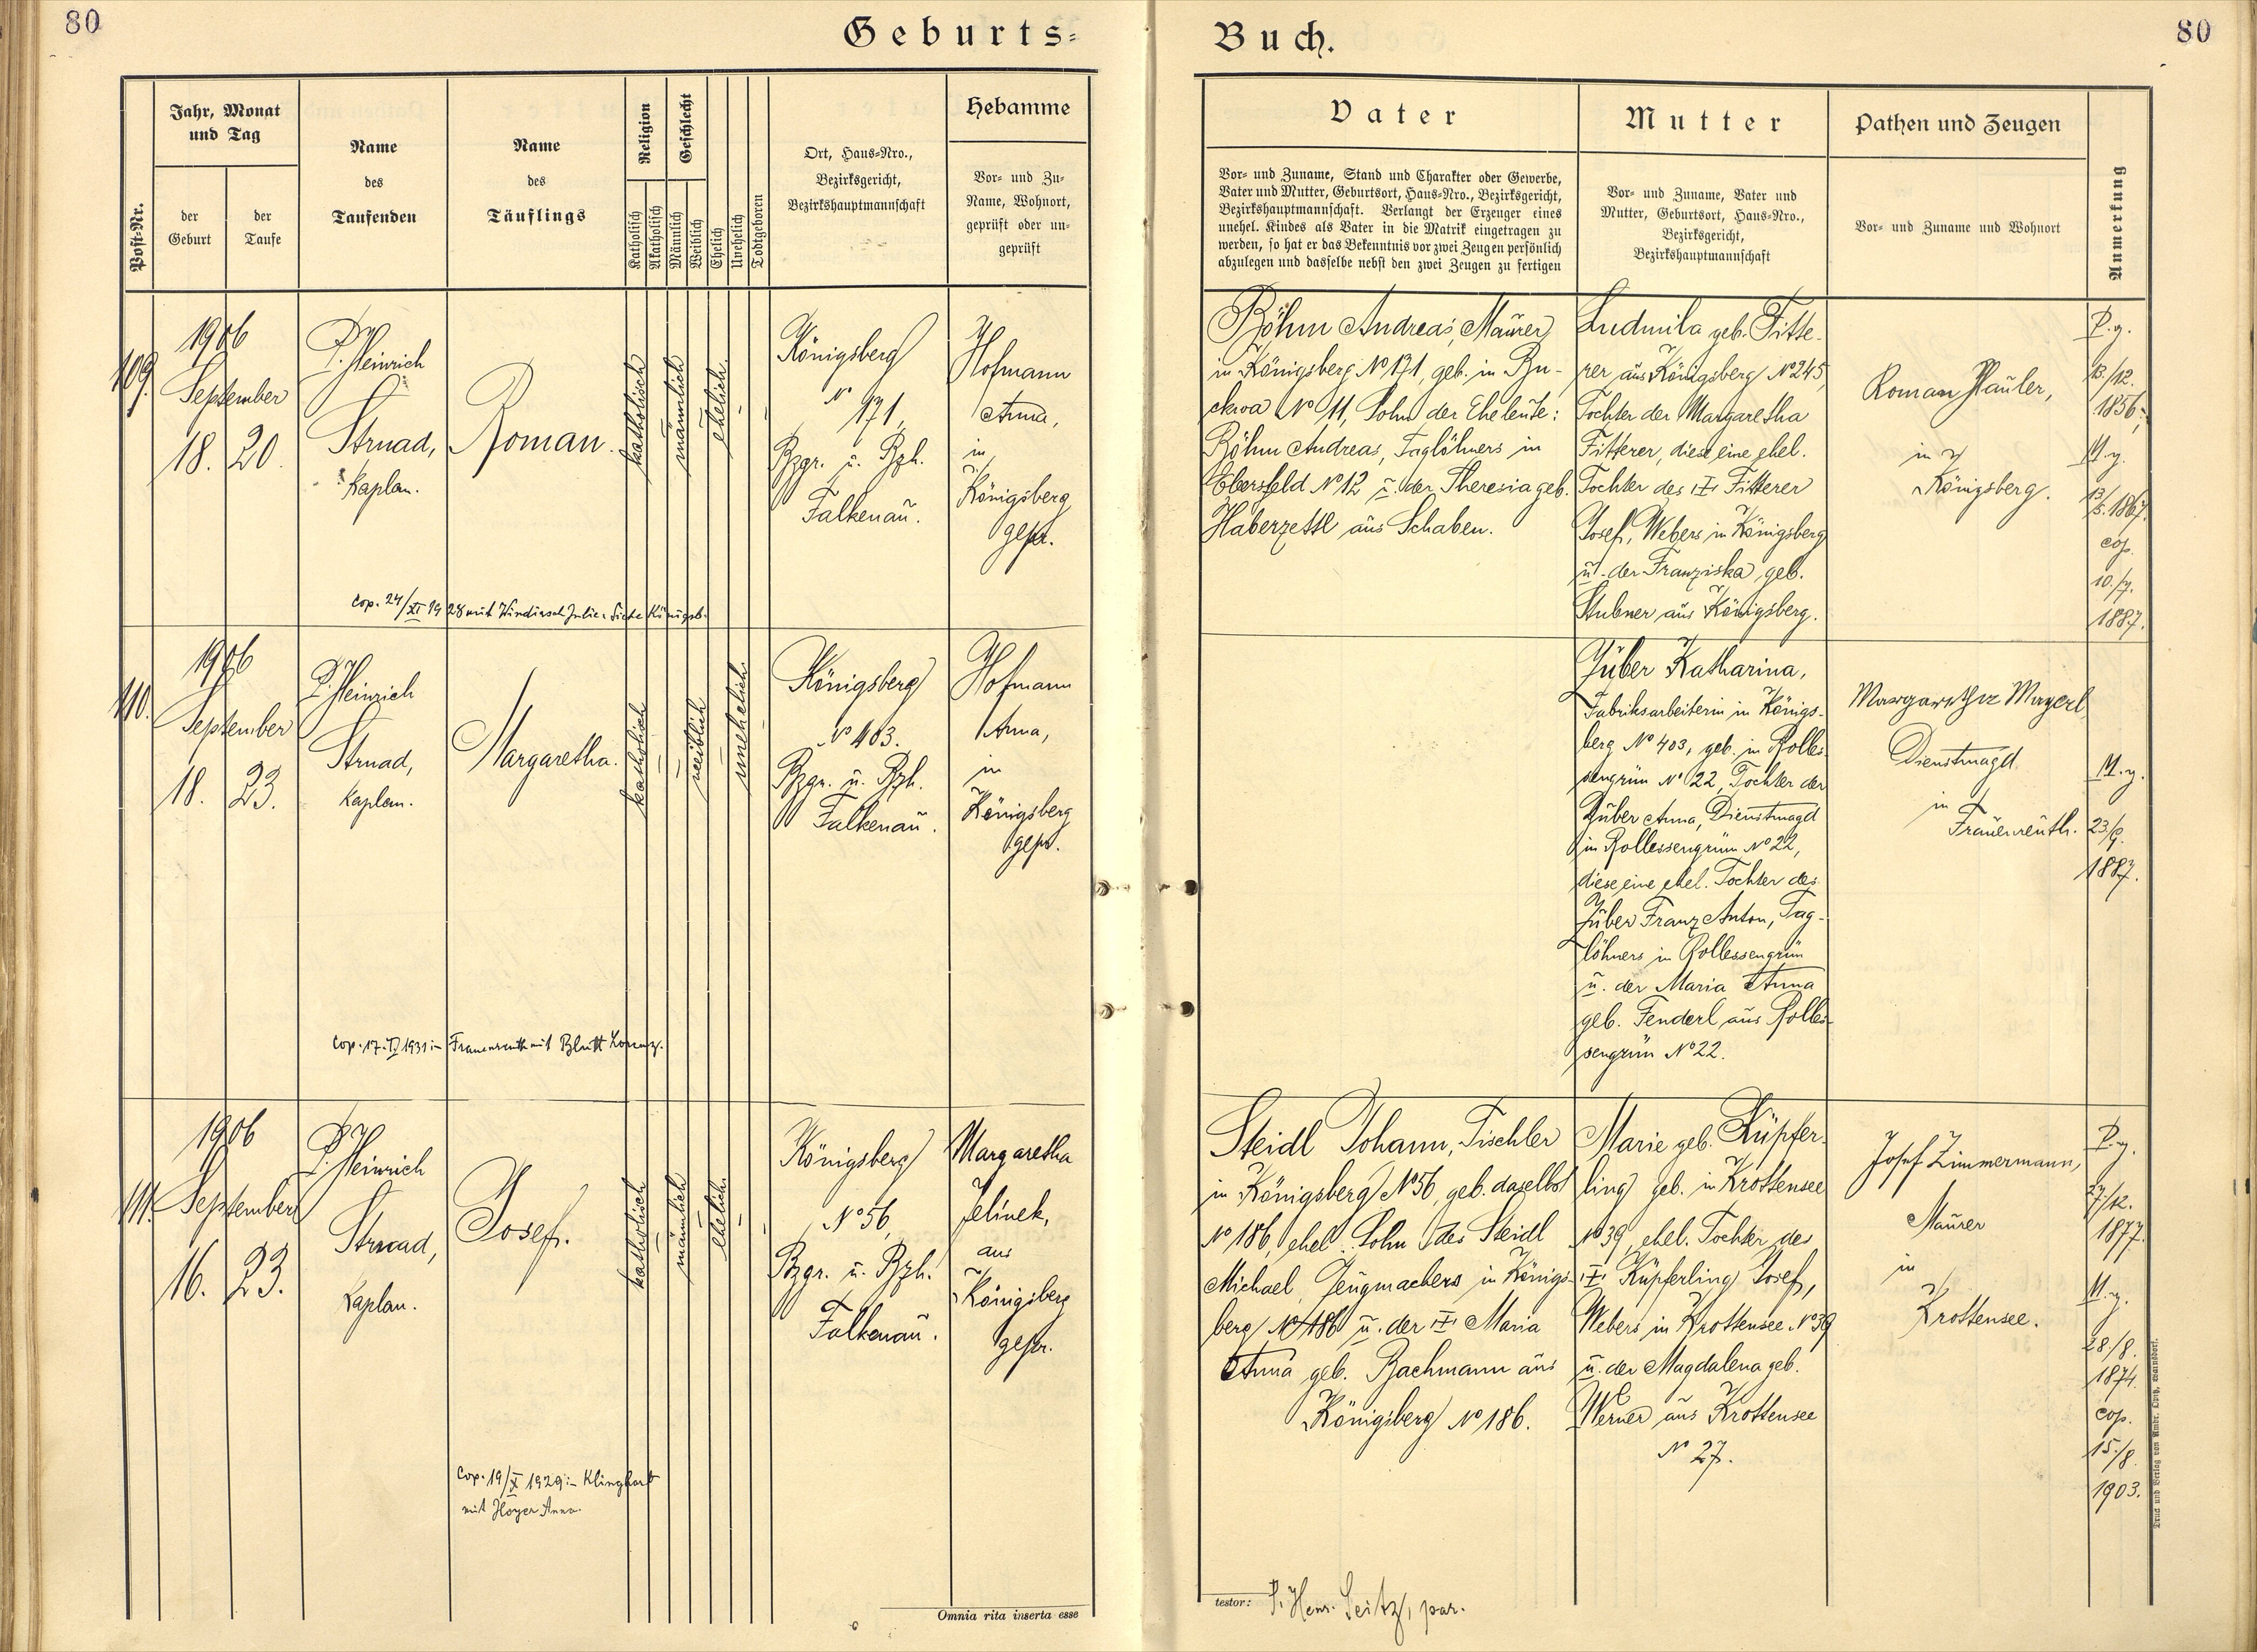 80
Geburts=
Buch.
80
Post-Nr.
Jahr, Monat
und Tag
der
Geburt
der
Taufe
Name
des
Taufenden
Name
des
Täuflings
Religion
Katholisch
Akatholisch
Geschlecht
Männlich
Weiblich
Ehelich
Unehelich
Todtgeboren
Ort, Haus=Nro.,
Bezirksgericht,
Bezirkshauptmannschaft
Hebamme
Vor= und Zu=
Name, Wohnort,
geprüft oder un=
geprüft
Vater
Vor= und Zuname, Stand und Charakter oder Gewerbe,
Vater und Mutter, Geburtsort, Haus=Nro., Bezirksgericht,
Bezirkshauptmannschaft. Verlangt der Erzeuger eines
unehel. Kindes als Vater in die Matrik eingetragen zu
werden, so hat er das Bekenntnis vor zwei Zeugen persönlich
abzulegen und dasselbe nebst den zwei Zeugen zu fertigen
Mutter
Vor= und Zuname, Vater und
Mutter, Geburtsort, Haus=Nro.,
Bezirksgericht,
Bezirkshauptmannschaft
Pathen und Zeugen
Vor= und Zuname und Wohnort
Anmerkung
109.
1906
September
18. 20.
P. Heinrich
Strnad,
Kaplan.
Roman.
katholisch
männlich
ehelich.
Königsberg
No
171,
Bzgr. u. Bzh.
Falkenau.
Hofmann
Anna,
in
Königsberg
gepr.
Böhm Andreas, Maurer
in Königsberg No 171, geb. in Bu-
ckwa No 11, Sohn der Eheleute:
Böhm Andreas, Taglöhners in
Ebersfeld No 12 u. der Theresia geb.
Haberzettl aus Schaben.
Ludmila geb. Fitte-
rer aus Königsberg No 245,
Tochter der Margaretha
Fitterer, diese eine ehel.
Tochter des Fitterer
Josef, Webers in Königsberg
u. der Franziska geb.
Stubner aus Königsberg.
Roman Hauler,
in
Königsberg.
P. g.
13./12.
1856;
M. g.
13/5. 1867.
cop.
10./7.
1887.
cop. 24/XI 1928 mit Julie Königsb.
110.
1906
September
18. 23.
P. Heinrich
Strnad,
Kaplan.
Margaretha.
katholisch
weiblich
unehelich
Königsberg
No 403.
Bzgr. u. Bzh.
Falkenau.
Hofmann
Anna,
in
Königsberg
gepr.
Züber Katharina,
Fabriksarbeiterin in Königs-
berg No 403, geb. in Rolles-
sengrün No 22, Tochter der
Züber Anna, Dienstmagd
in Rollessengrün No 22,
diese eine ehel. Tochter des
Züber Franz Anton, Tag-
löhners in Rollessengrün
u. der Maria Anna
geb. Fenderl aus Rolles-
sengrün No 22.
Margaretha Mayerl
Dienstmagd
in
Frauenreuth.
M. g.
23/9.
1887.
Frauenreuth mit Blutt Lorenz.
111.
1906
September
16. 23.
P. Heinrich
Strnad,
Kaplan.
Josef.
katholisch
männlich
ehelich.
Königsberg
No 56,
Bzgr. u. Bzh.
Falkenau.
Margaretha
Jelinek,
aus
Königsberg
gepr.
Steidl Johann, Tischler
in Königsberg No 56, geb. daselbst
No 186, ehel. Sohn des Steidl
Michael, Zeugmachers in Königs-
berg No 186 u. der Maria
Anna geb. Bachmann aus
Königsberg No 186.
Marie geb. Küpfer-
ling geb. in Krottensee
No 39, ehel. Tochter des
Küpferling Josef,
Webers in Krottensee No 39
u. der Magdalena geb.
Werner aus Krottensee
No 27.
Josef Zimmermann,
Maurer
in
Krottensee.
P. g.
27/12.
1877.
M. g.
28./8.
1874.
cop.
15./8.
1903.
cop. 19/X 1929:- Klinghart
mit Hoyer Anna.
Omnia rita inserta esse
testor: P. Henr. Seitz, par.
Druck und Verlag von Ambr. Opitz, Warnsdorf.